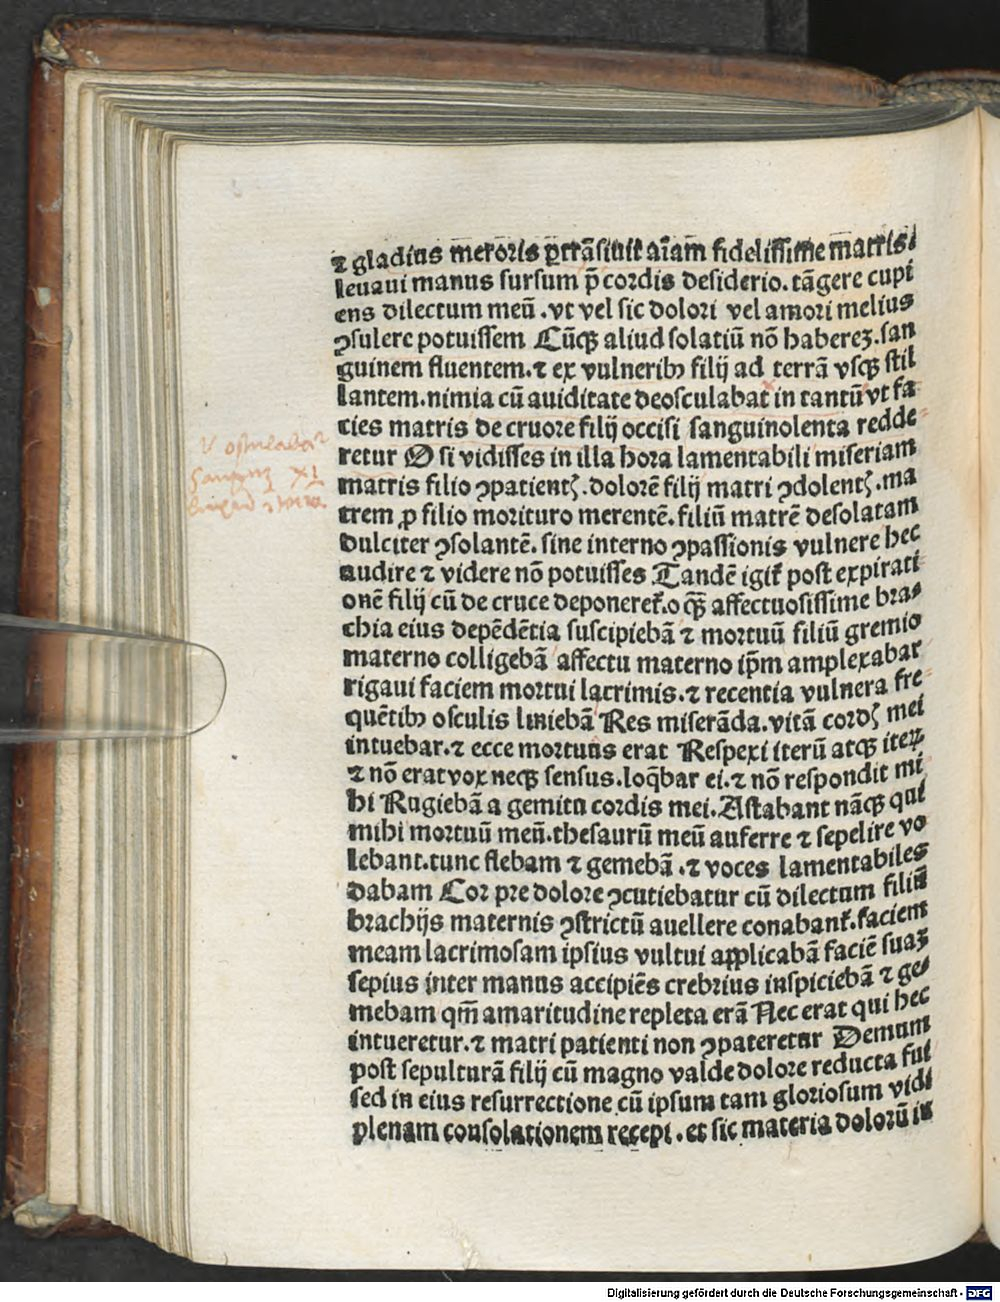 ⁊ gladius meroris ꝑtrāsiuit aīam fidelissime matris!
leuaui manus sursum p̄ cordis desiderio. tāgere cupi
ens dilectum meū .vt vel sic dolori vel amori melius
ꝯsulere potuissem Cūqꝫ aliud solatiū nō habereꝫ. san
guinem fluentem. ⁊ ex vulneribꝰ filij ad terrā vsqꝫ stil
lantem. nimia cū auiditate deosculabat in tantū vt fa
cies matris de cruore filij occisi sanguinolenta redde⸗
retur O si vidisses in illa hora lamentabili miseriam
matris filio ꝯpatientꝭ. dolorē filij matri ꝯdolentꝭ. ma
trem ꝓ filio morituro merentē. filiū matrē desolatam
dulciter ꝯsolantē. sine interno ꝯpassionis vulnere hec
audire ⁊ videre nō potuisses Tandē igit᷑ post expirati
onē filij cū de cruce deponeret᷑. o qꝫ̄ affectuosissime bra⸗
chia eius depēdētia suscipiebā ⁊ mortuū filiū gremio
materno colligebā affectu materno ip̄m amplexabar
rigaui faciem mortui lacrimis. ⁊ recentia vulnera fre⸗
quētibꝰ osculis liniebā Res miserāda. vitā cordꝭ mei
intuebar. ⁊ ecce mortuus erat Respexi iterū atqꝫ iteꝝ
⁊ nō erat vox neqꝫ sensus. loq̄bar ei. ⁊ nō respondit mi
hi Rugiebā a gemitu cordis mei. Astabant nāqꝫ qui
mihi mortuū meū. thesaurū meū auferre ⁊ sepelire vo
lebant. tunc flebam ⁊ gemebā .⁊ voces lamentabiles
dabam Cor pre dolore ꝯcutiebatur cū dilectum filiū
brachijs maternis ꝯstrictū auellere conabant᷑. faciem
meam lacrimosam ipsius vultui applicabā faciē suaꝫ
sepius inter manus accipiēs crebrius inspiciebā ⁊ ge⸗
mebam qm̄ amaritudine repleta erā Nec erat qui hec
intueretur. ⁊ matri patienti non ꝯpateretur Demum
post sepulturā filij cū magno valde dolore reducta fui
sed in eius resurrectione cū ipsum tam gloriosum vidi
plenam consolationem recepi . et sic materia dolorū in
Digitalisierung gefördert durch die Deutsche Forschungsgemeinschaft - DFG